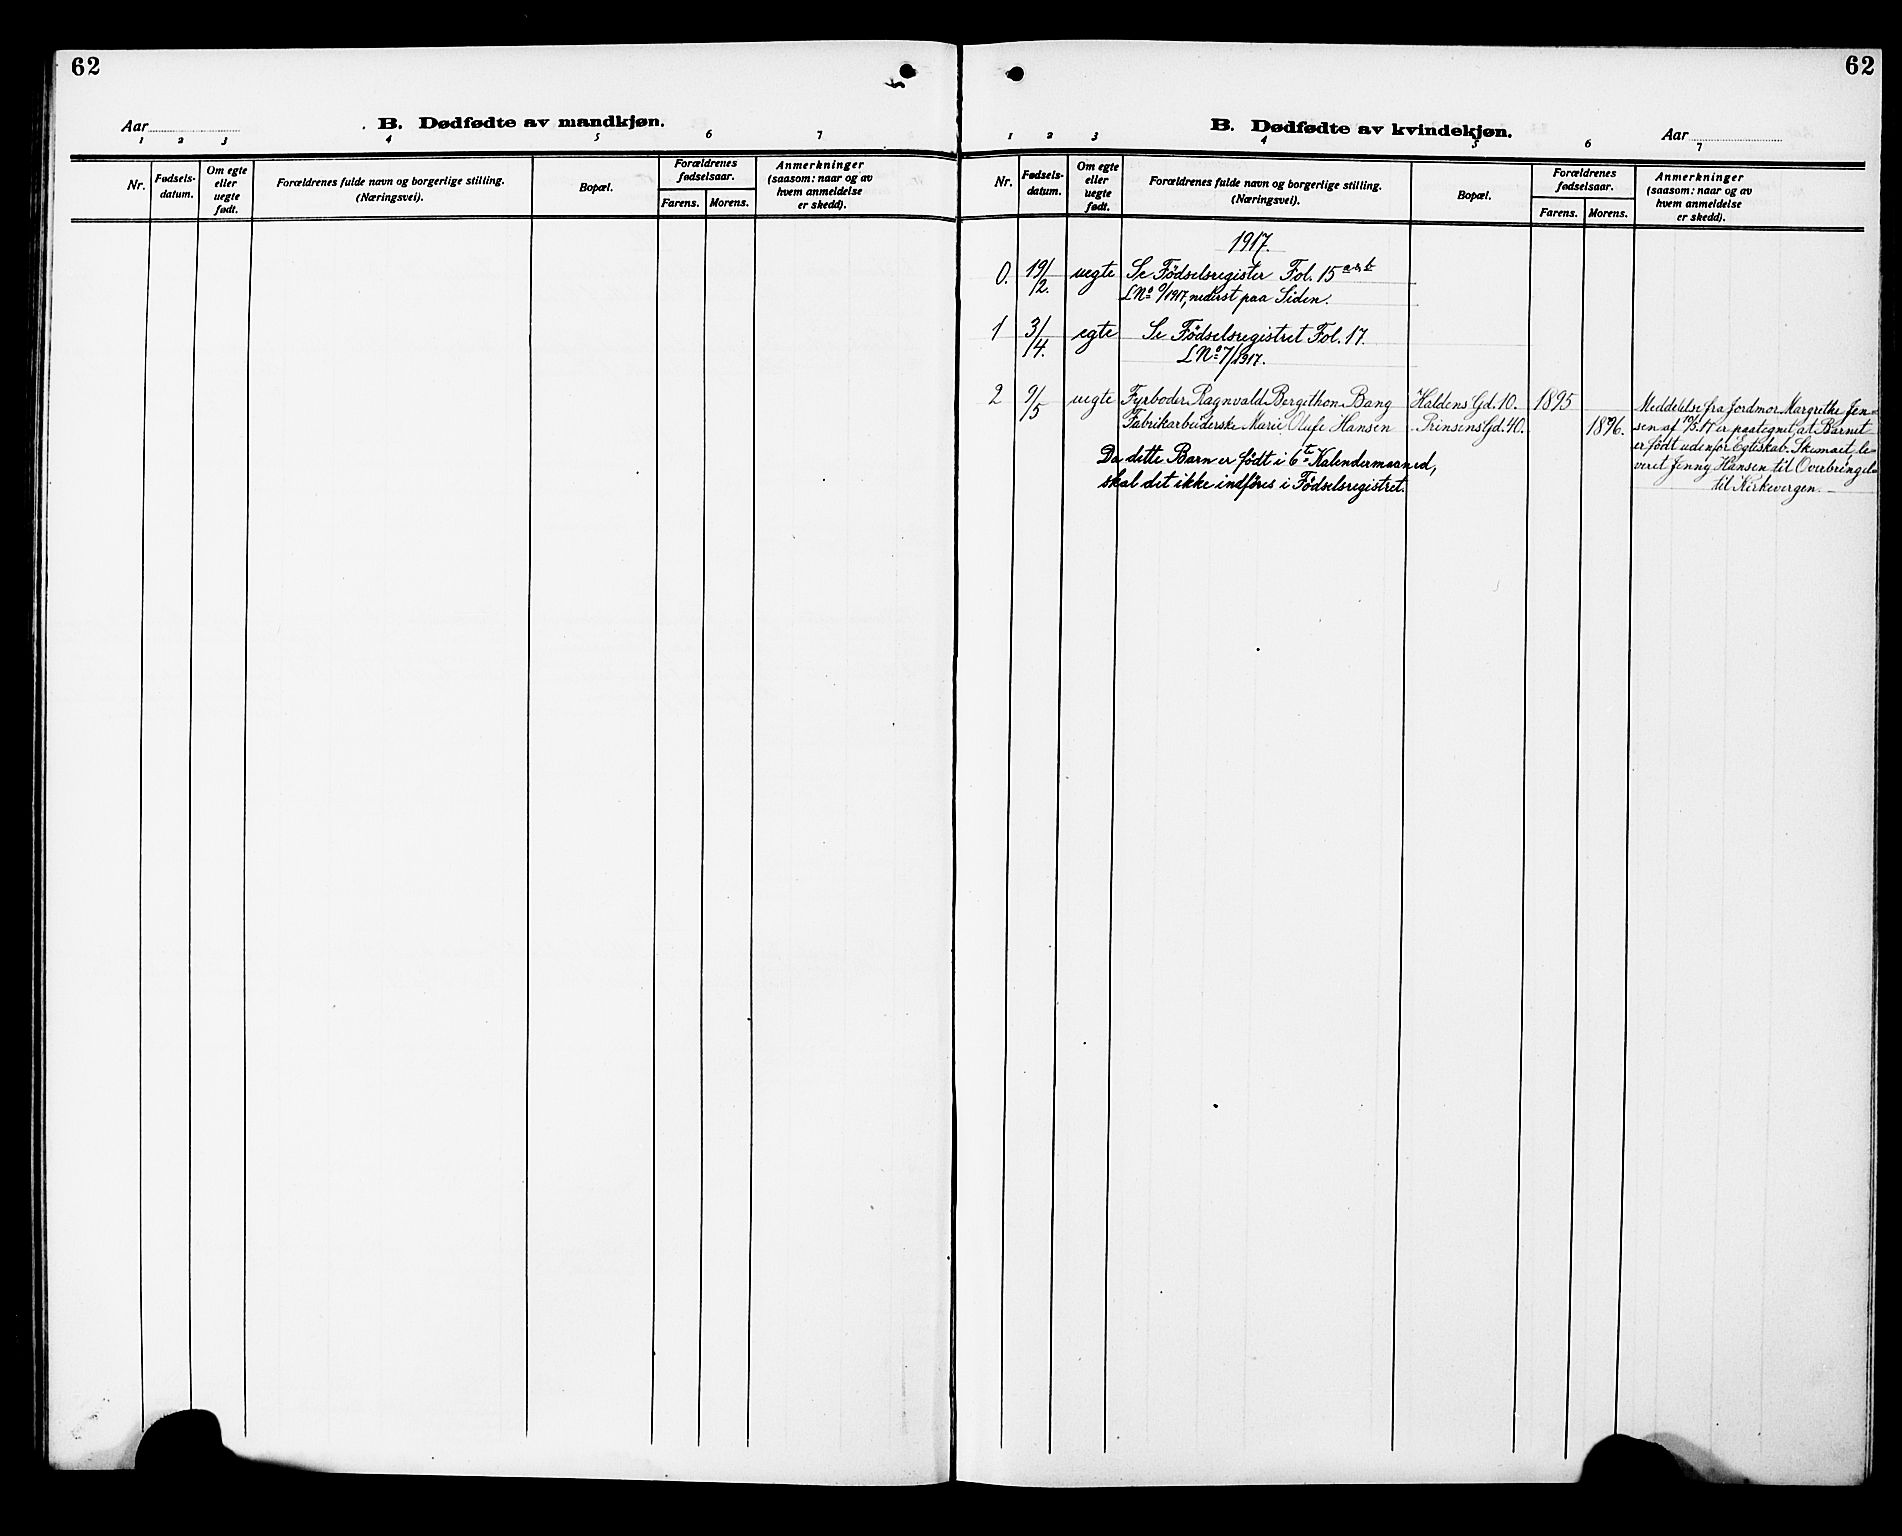 62
B. Dødfødte av mandkjøn.
Aar
1 2 3 4 5 6 7
Nr. Fødsels-datum. Om egte eller uegte født. Forældrenes fulde navn og borgerlige stilling. (Næringsvei). Bopæl. Forældrenes fødselsaar. Farens. Morens. Anmerkninger (saasom: naar og av hvem anmeldelse er skedd).
62
B. Dødfødte av kvindekjøn.
Aar
1 2 3 4 5 6 7
Nr. Fødsels-datum. Om egte eller uegte født. Forældrenes fulde navn og borgerlige stilling. (Næringsvei). Bopæl. Forældrenes fødselsaar. Farens. Morens. Anmerkninger (saasom: naar og av hvem anmeldelse er skedd).
1917.
0. 19/2. uegte Se Födselsregister Fol. 15
L Nº 0/1917, nederst paa Siden.
1 3/4. egte Se Födselsregistret Fol. 17.
L Nº 7/1917.
2 9/5 uegte Fyrböder Ragnvald Bergithon Bang Haldens Gd. 10. 1895
Fabrikarbeiderske Marie Olufe Hansen Prinsens Gd. 40. 1896.
Da dette Barn er födt i 6te Kalendermaaned,
skal det ikke indföres i Födselsregistret.
Meddelelse fra Jordmor Margrethe Jen=
sen af 10/5.17 er paategnet, at Barnet
er födt udenfor Egteskab. Skemaet le=
veret Jenny Hansen til Overbringelse
til Kirkevergen. —